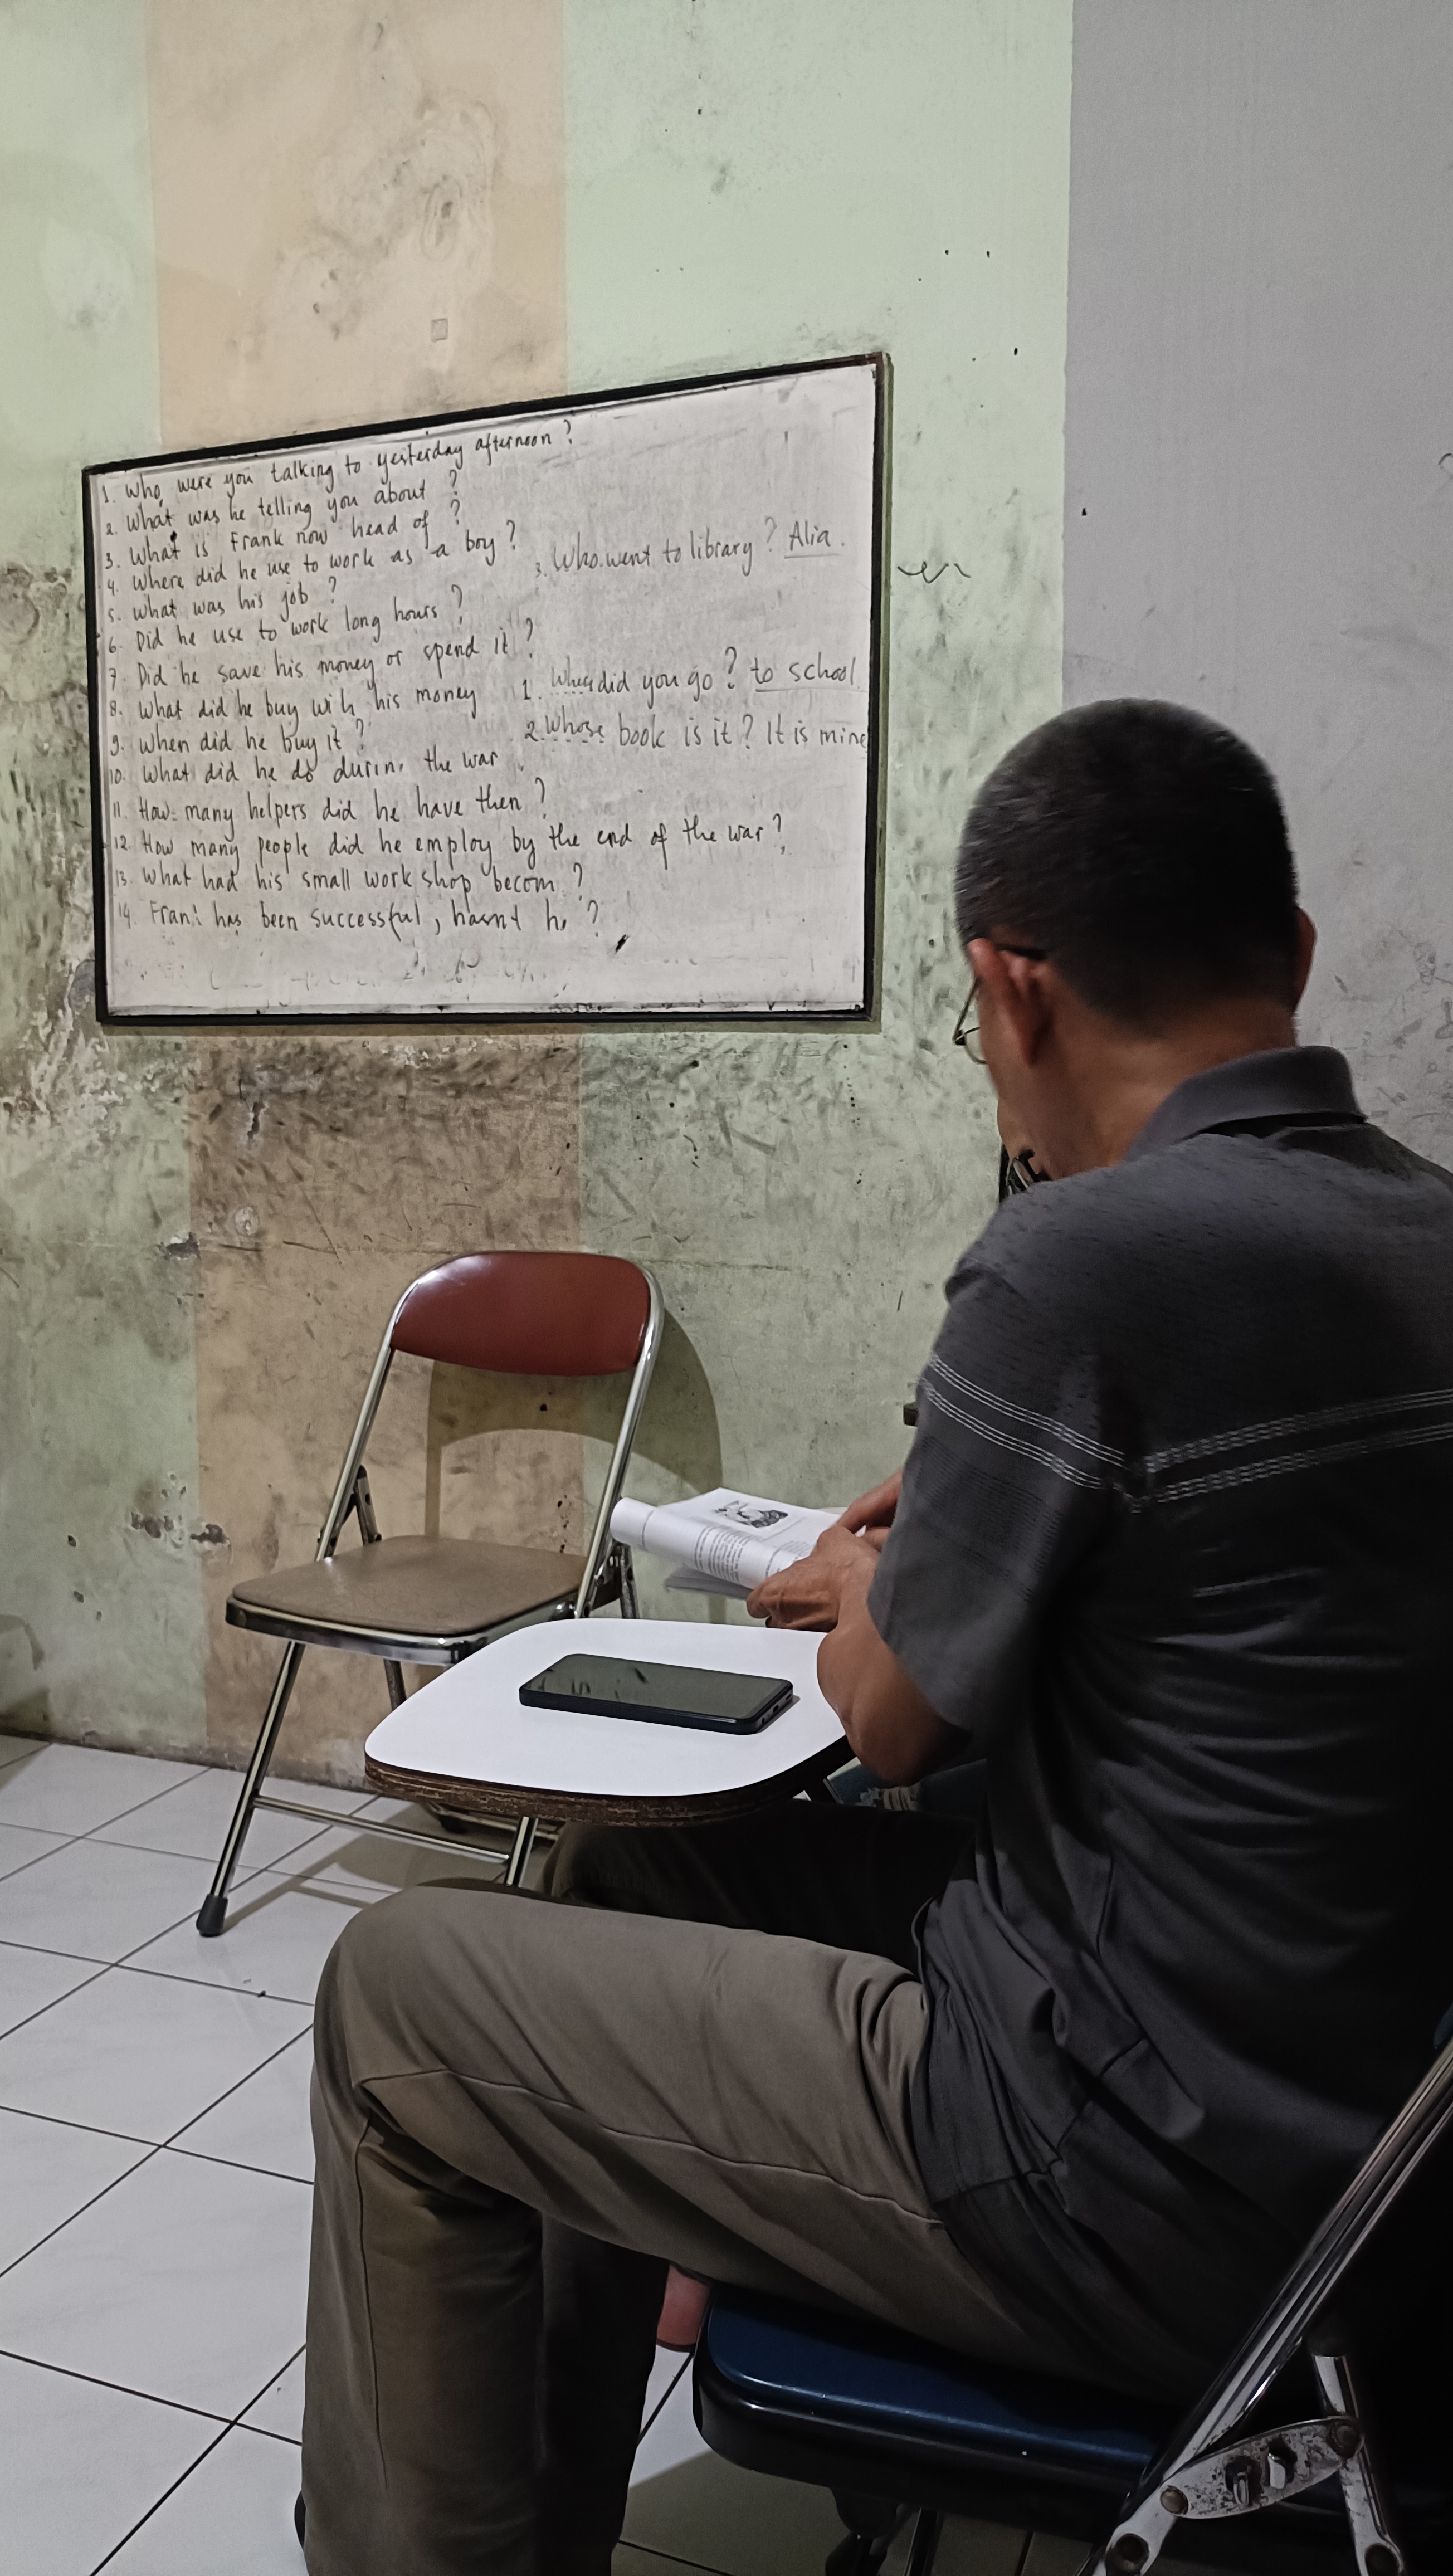 1. Who were you talking to yesterday afternoon?
2. What was he telling you about?
3. What is Frank now head of?
4. Where did he use to work as a boy?
5. What was his job?
6. Did he use to work long hours?
7. Did he save his money or spend it?
8. What did he buy with his money
9. When did he buy it?
10. What did he do durin. the war
11. How many helpers did he have then?
12. How many people did he employ by the end of the war?
13. What had his small workshop becom ?
14. Fran has been successful, hasn't h ?
3. Who went to library? Alia.
1. did you go? to school
2. Whose book is it? It is mine